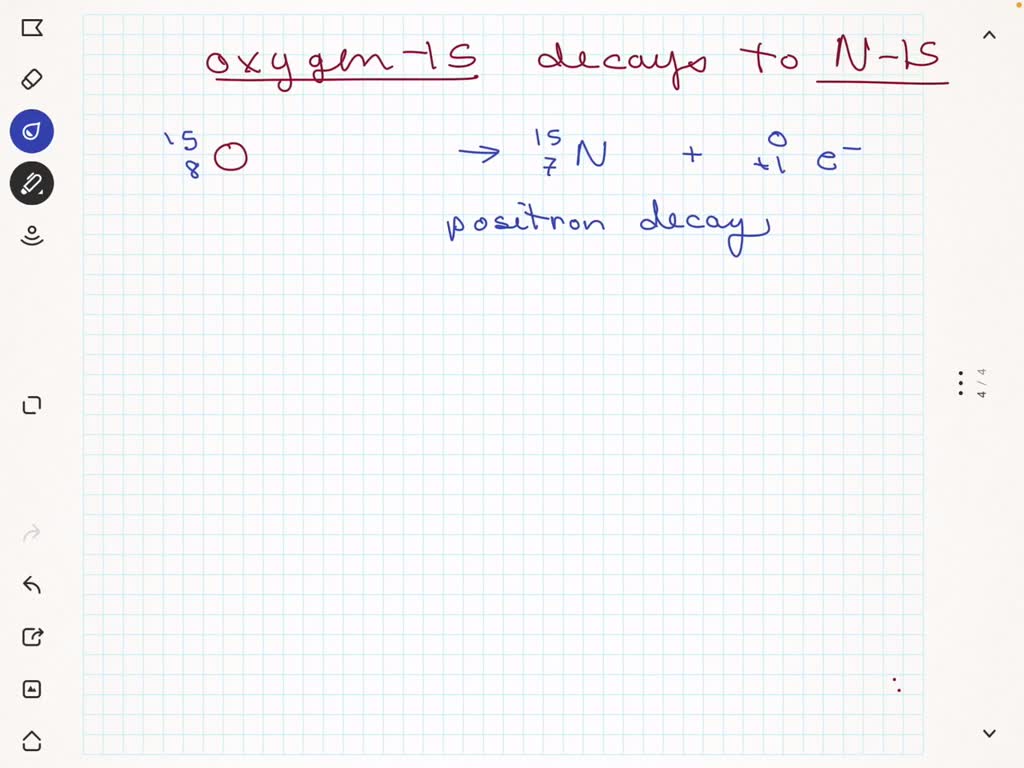 oxygen-15 decays to N-15
¹⁵₈O → ¹⁵₇N + ⁰₊₁e⁻
positron decay
4 / 4